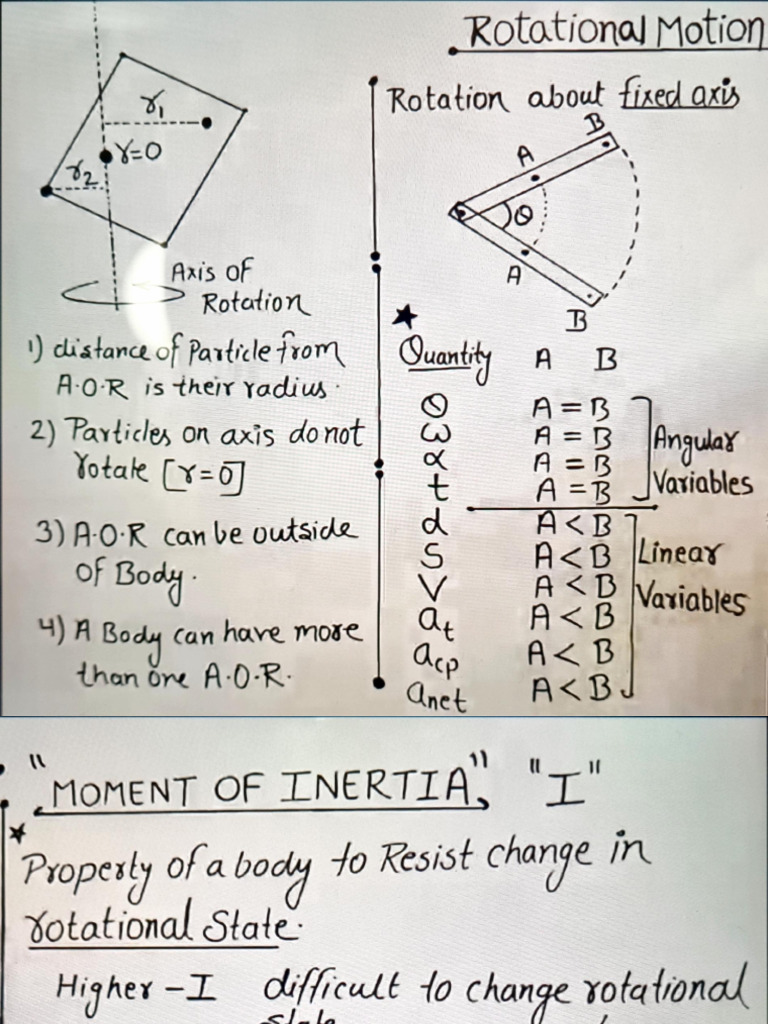 Rotational Motion
r₁
r=0
r₂
Axis of
Rotation
1) distance of Particle from
A.O.R is their radius.
2) Particles on axis do not
rotate [r=0]
3) A.O.R can be outside
of Body.
4) A Body can have more
than one A.O.R.
Rotation about fixed axis
B
A
θ
A
B
★
Quantity A B
θ A = B
ω A = B
α A = B
t A = B
Angular
Variables
d A < B
S A < B
V A < B
aₜ A < B
a_cp A < B
a_net A < B
Linear
Variables
"MOMENT OF INERTIA" "I"
★
Property of a body to Resist change in
rotational State.
Higher – I difficult to change rotational
State